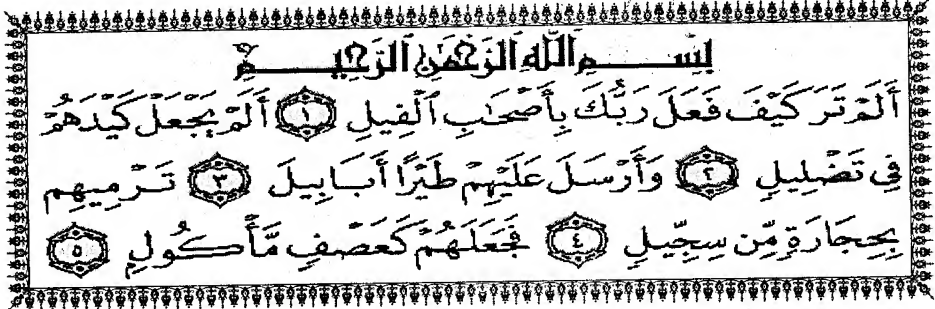 بِسْمِ اللَّهِ الرَّحْمَٰنِ الرَّحِيمِ
أَلَمْ تَرَ كَيْفَ فَعَلَ رَبُّكَ بِأَصْحَٰبِ ٱلْفِيلِ ١ أَلَمْ يَجْعَلْ كَيْدَهُمْ
فِي تَضْلِيلٍ ٢ وَأَرْسَلَ عَلَيْهِمْ طَيْرًا أَبَابِيلَ ٣ تَرْمِيهِم
بِحِجَارَةٍ مِّن سِجِّيلٍ ٤ فَجَعَلَهُمْ كَعَصْفٍ مَّأْكُولٍ ٥